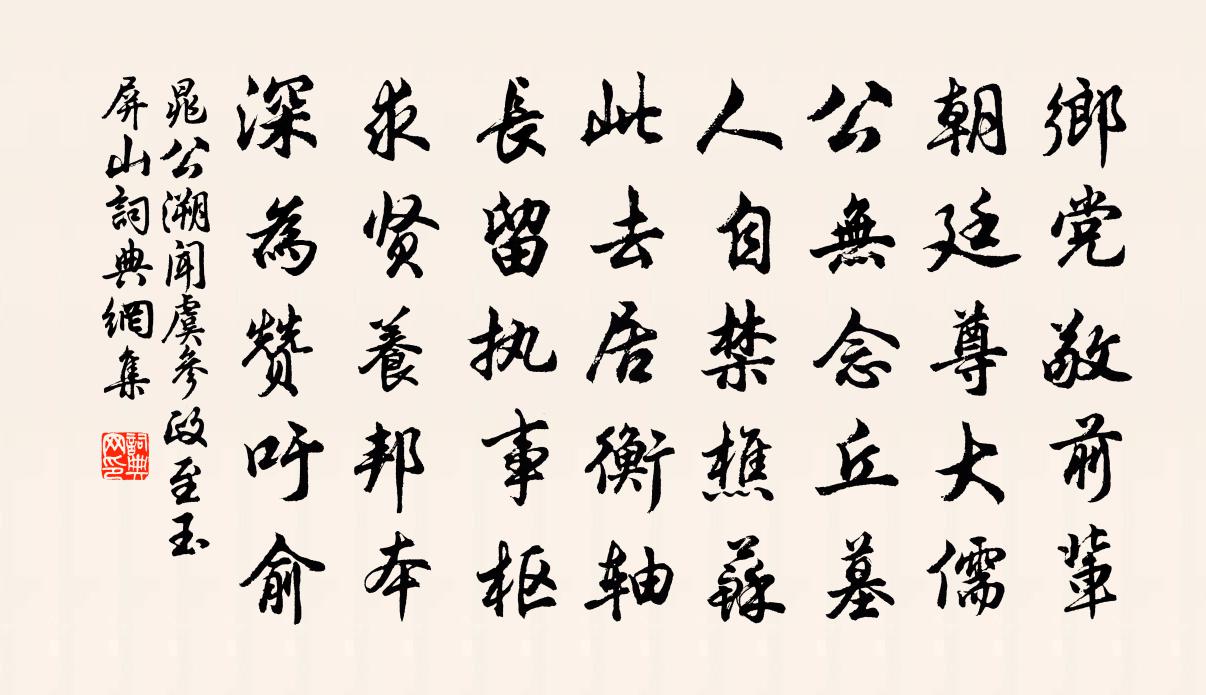 鄉党敬前輩
朝廷尊大儒
公無念丘墓
人自禁樵蘇
此去居衡轴
長留执事枢
求贤養邦本
深為赞吁俞
晁公溯闻虞參政至玉
屏山詞典網集
詞典网印